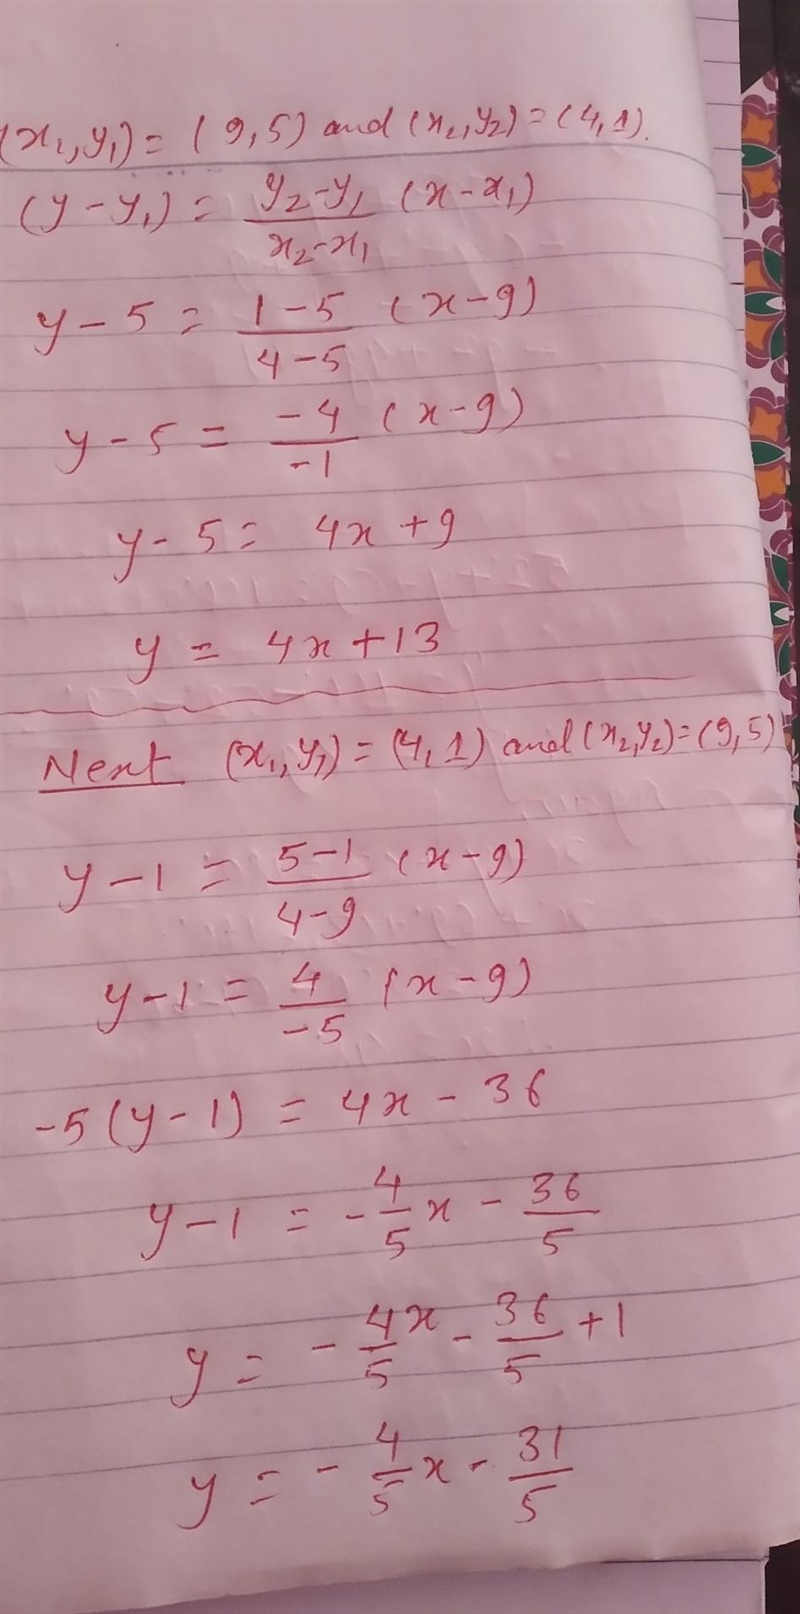 (x₁,y₁) = (9,5) and (x₂,y₂) = (4,1).
(y-y₁) = y₂-y₁/x₂-x₁ (x-x₁)
y-5 = 1-5/4-5 (x-9)
y-5 = -4/-1 (x-9)
y-5 = 4x+9
y = 4x+13
Next (x₁,y₁) = (4,1) and (x₂,y₂) = (9,5)
y-1 = 5-1/4-9 (x-9)
y-1 = 4/-5 (x-9)
-5(y-1) = 4x-36
y-1 = -4/5x - 36/5
y = -4x/5 - 36/5 +1
y = -4/5x - 31/5